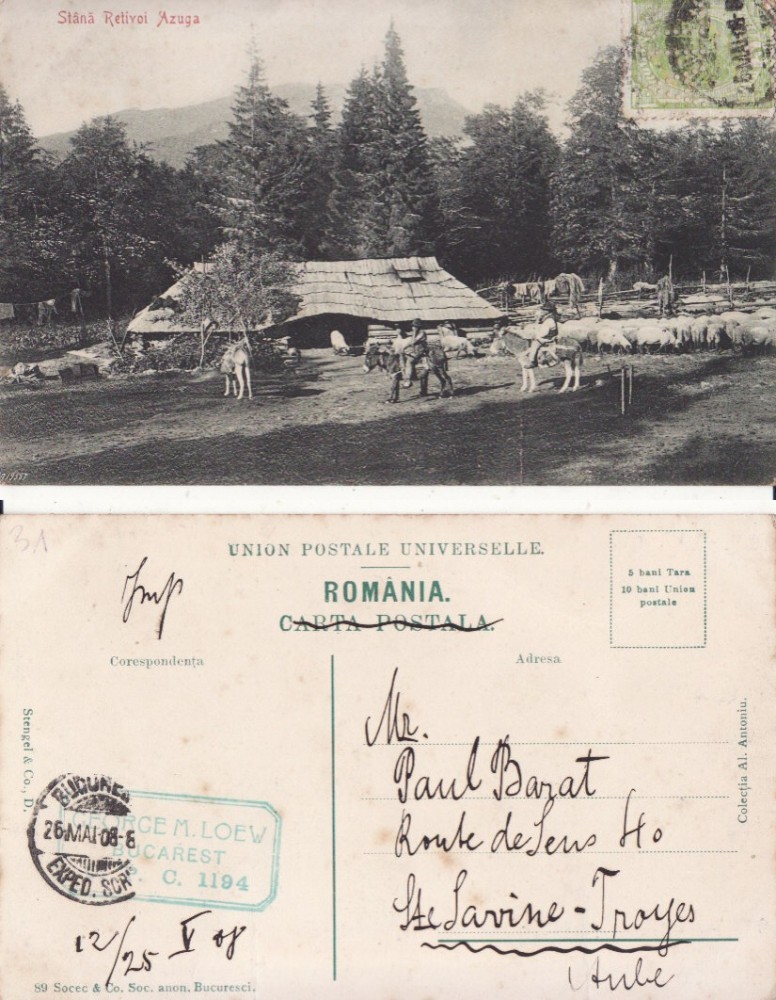 Stână Retivoi Azuga
31
UNION POSTALE UNIVERSELLE.
ROMÂNIA.
CARTA POSTALA.
5 bani Tara
10 bani Union
postale
Imp
Corespondența
Adresa
Stengel & Co., D.
Colecția Al. Antoniu.
Mr.
Paul Barat
Route de Sens 40
Ste Savine - Troyes
Aube
BUCUREȘ
26 MAI 08-8
EXPED. SCR
GEORGE M. LOEW
BUCAREST
C. 1194
12/25 V 08
89 Socec & Co. Soc. anon. Bucuresci.